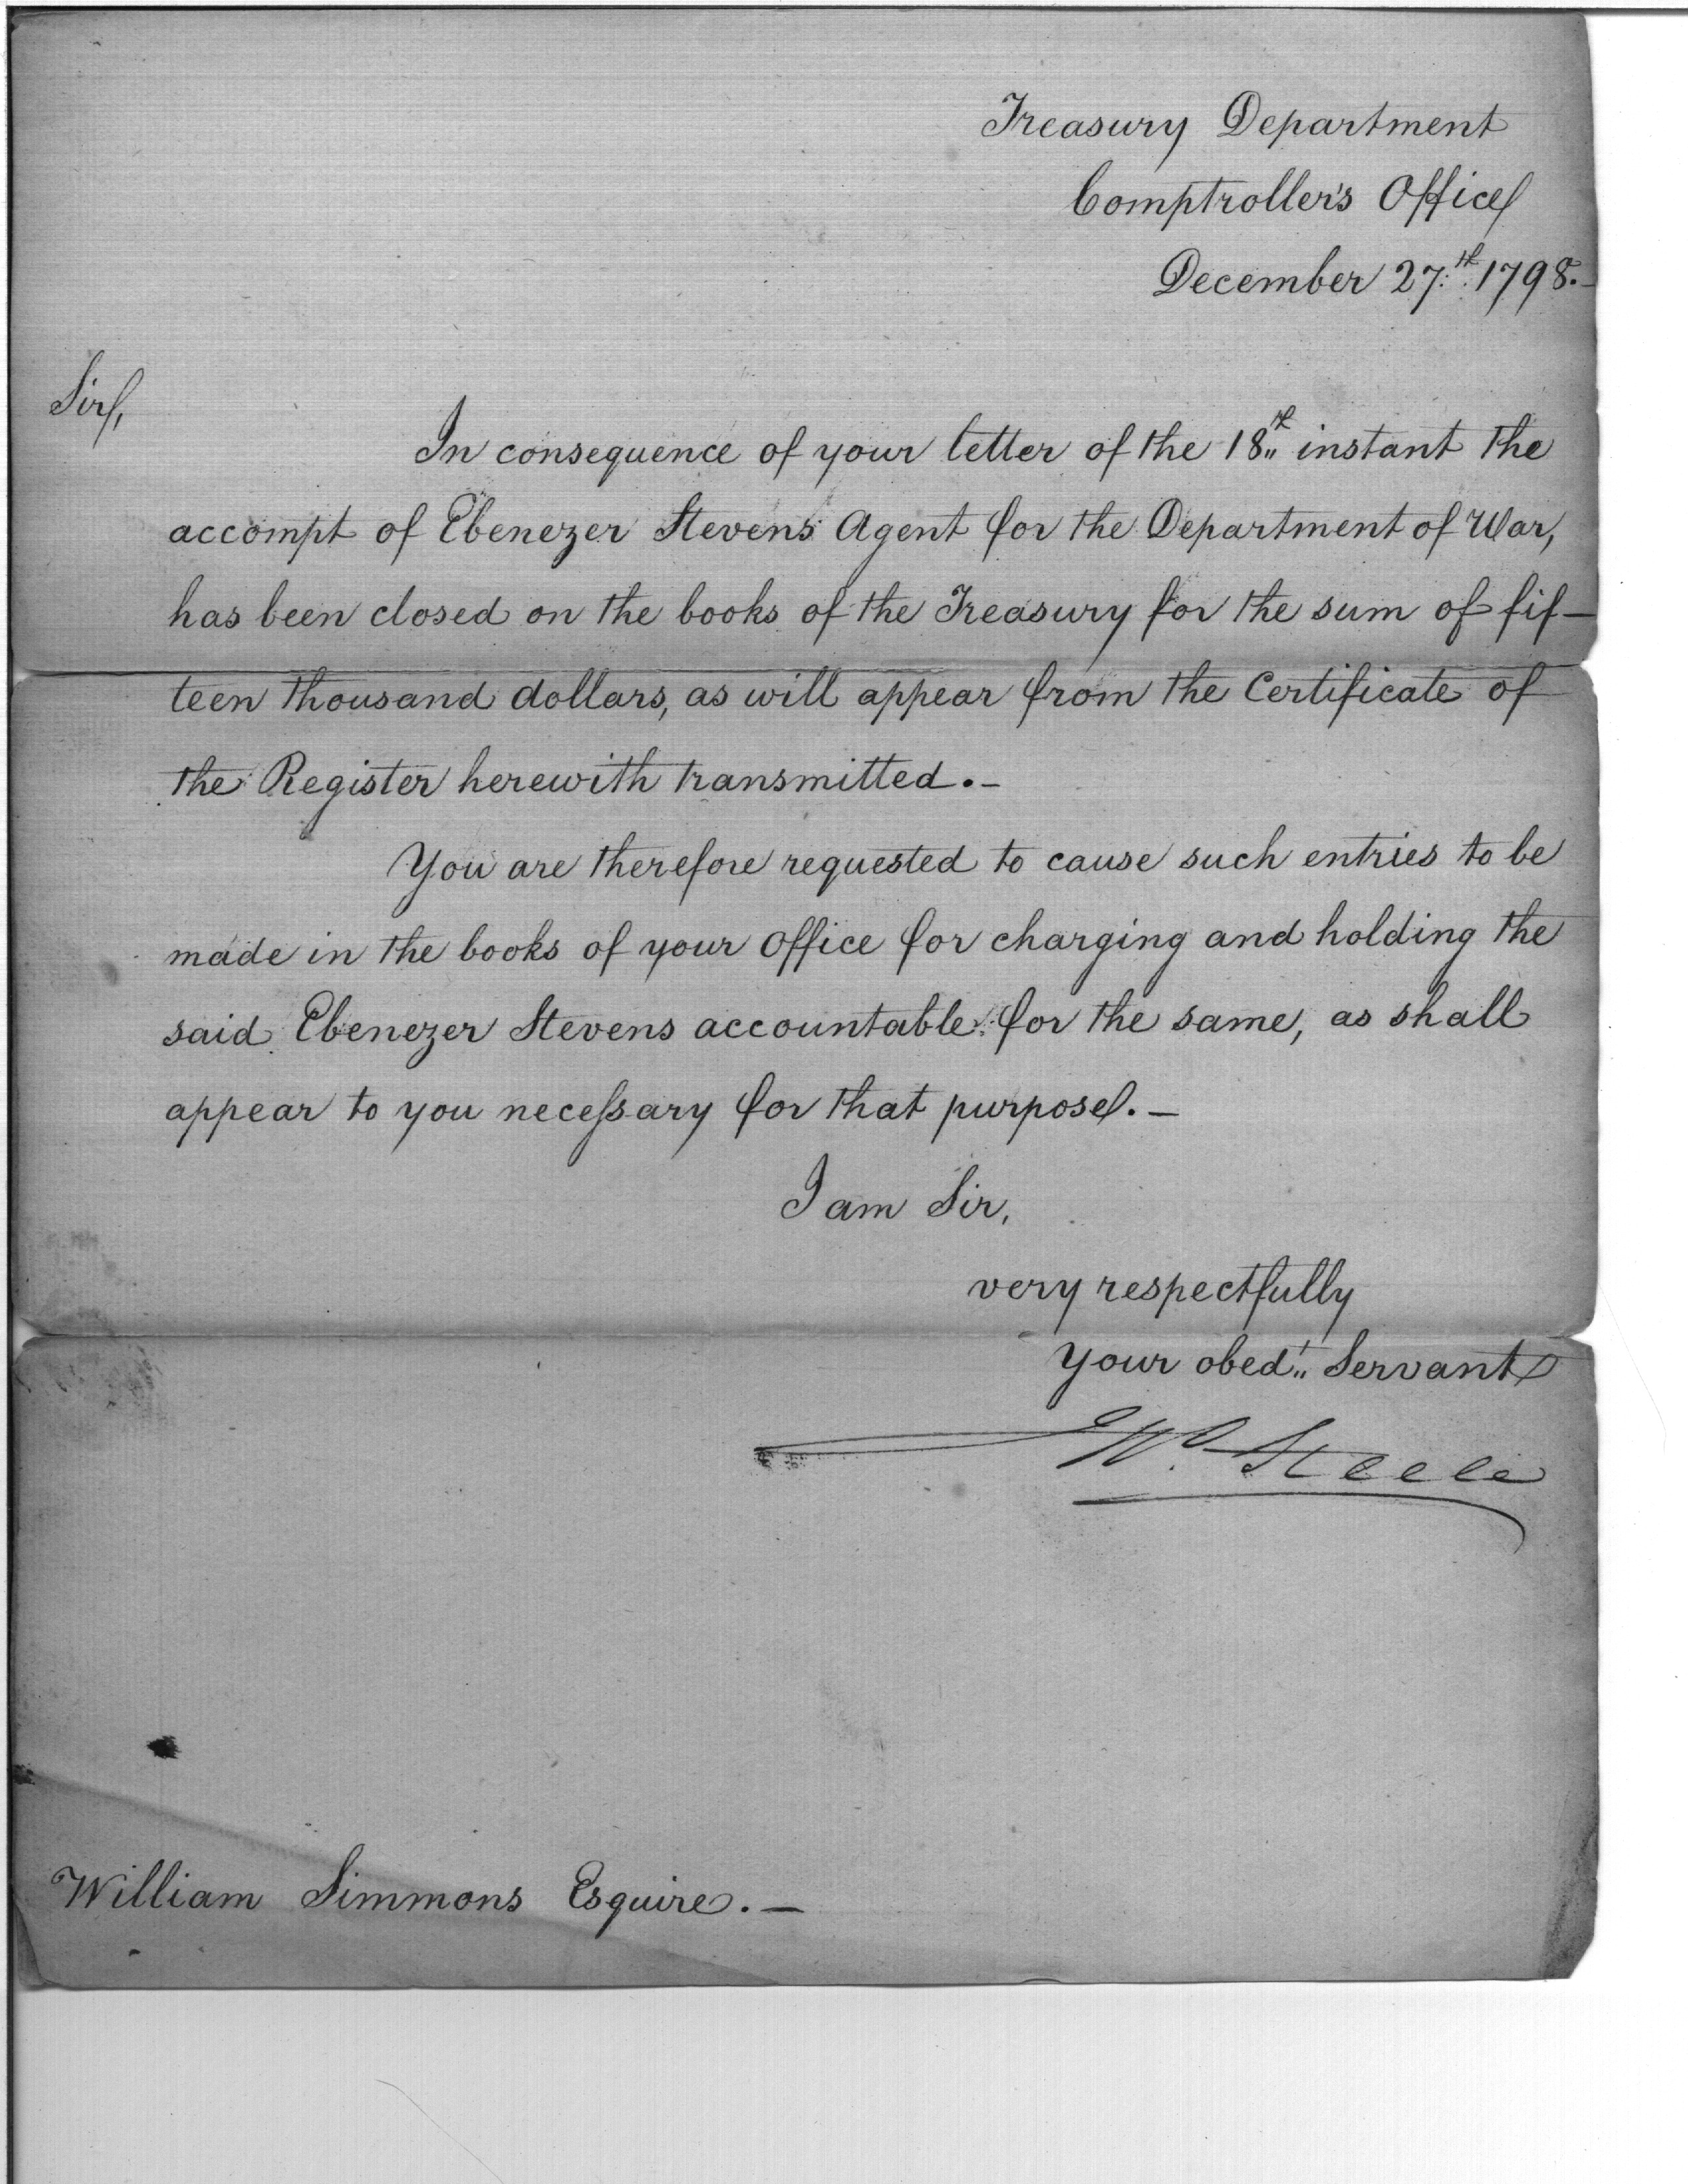 Treasury Department
Comptroller's Office
December 27th. 1798.-
Sir,
In consequence of your letter of the 18th instant the
accompt of Ebenezer Stevens Agent for the Department of War,
has been closed on the books of the Treasury for the sum of fif-
teen thousand dollars, as will appear from the Certificate of
the Register herewith transmitted.-
You are therefore requested to cause such entries to be
made in the books of your office for charging and holding the
said Ebenezer Stevens accountable for the same, as shall
appear to you neceſsary for that purpose.-
I am Sir,
very respectfully
your obedt. Servant
Steele
William Simmons Esquire.-